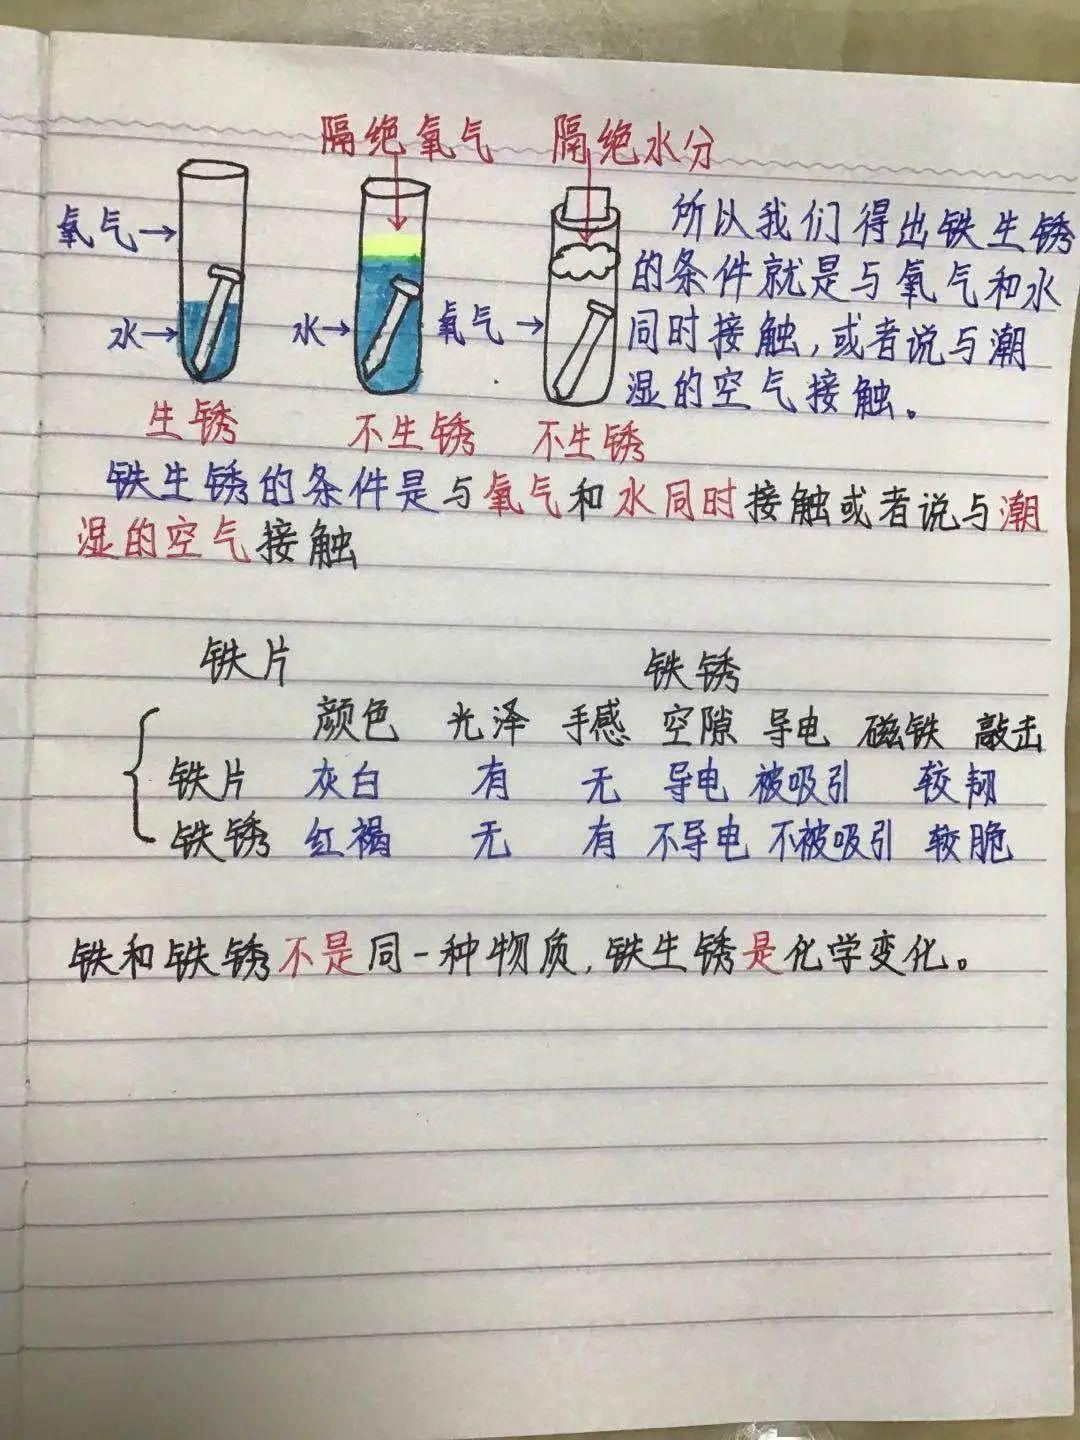 隔绝氧气 隔绝水分
氧气→
水→
水→
氧气→
生锈 不生锈 不生锈
所以我们得出铁生锈
的条件就是与氧气和水
同时接触,或者说与潮
湿的空气接触。
铁生锈的条件是与氧气和水同时接触或者说与潮
湿的空气接触
铁片 铁锈
颜色 光泽 手感 空隙 导电 磁铁 敲击
铁片 灰白 有 无 导电 被吸引 较韧
铁锈 红褐 无 有 不导电 不被吸引 较脆
铁和铁锈不是同一种物质,铁生锈是化学变化。